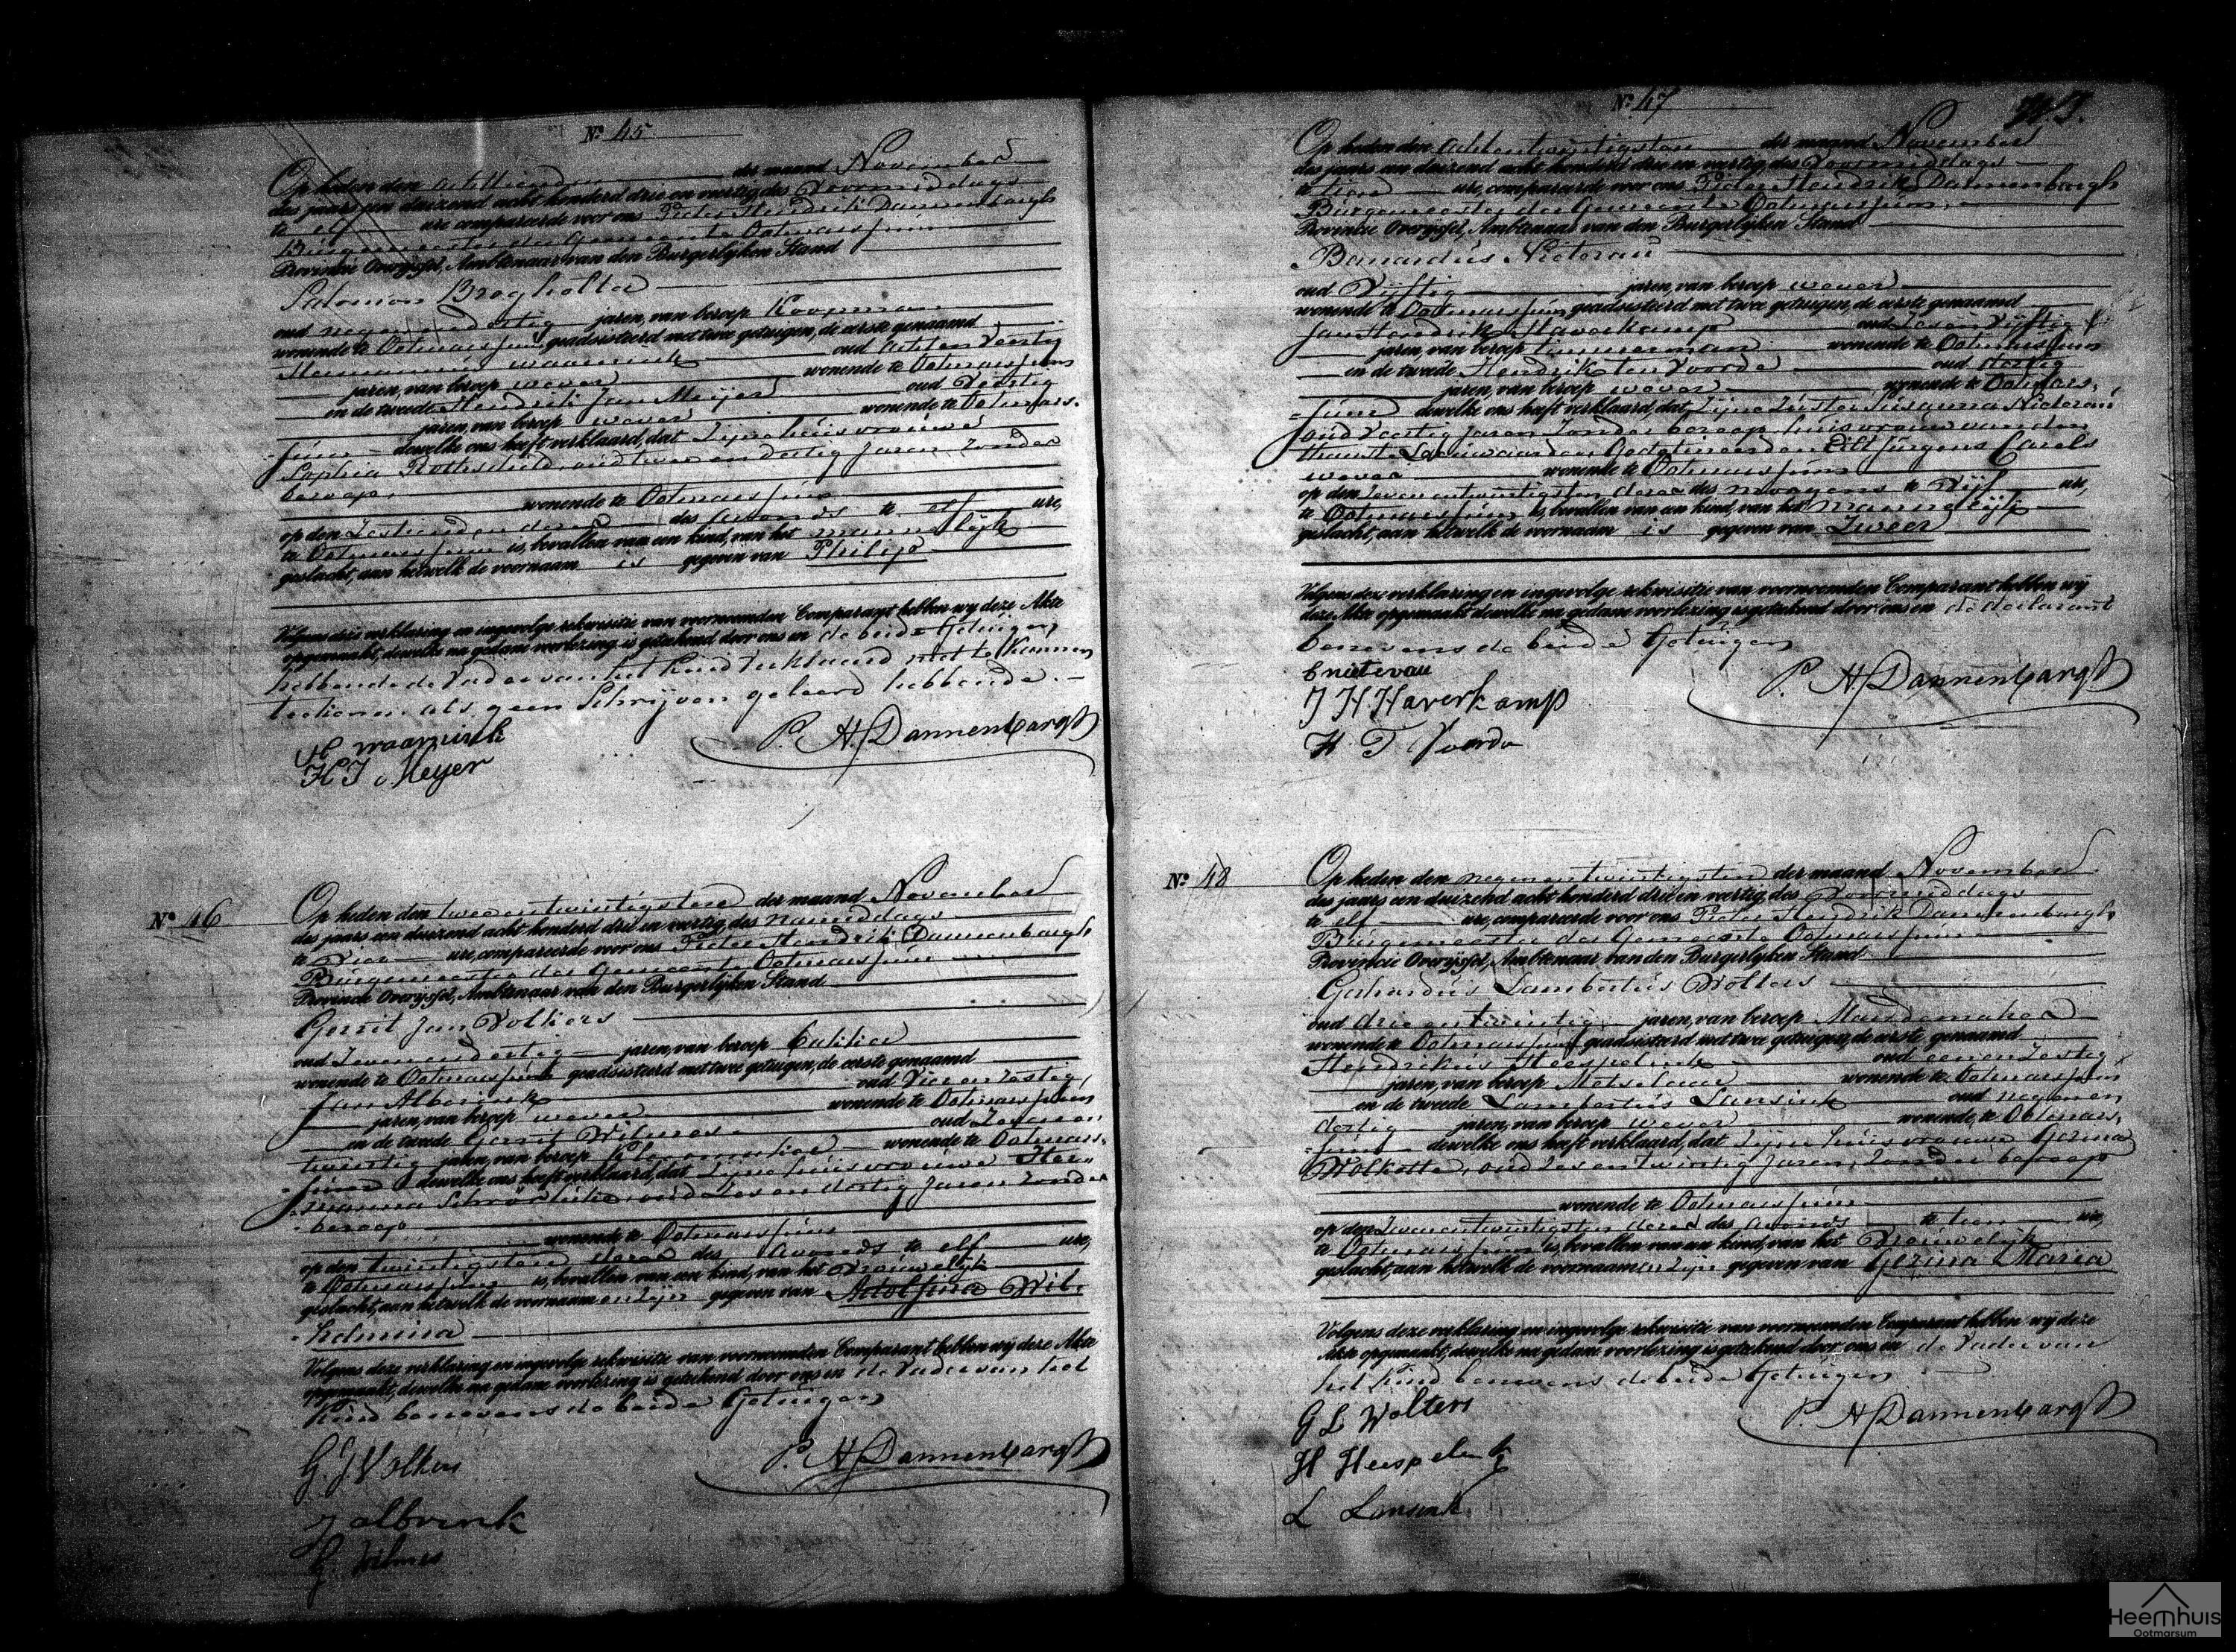 Nº 45
Op heden den achttienden der maand November
des jaars een duizend acht honderd drie en veertig, des Voormiddags
te elf ure compareerde voor ons Pieter Hendrik Dannenbargh
Burgemeester der Gemeente Ootmarssum
Provincie Overijssel, Ambtenaar van den Burgerlijken Stand
Salomon Bregholta
oud negen en dertig jaren, van beroep Koopman
wonende te Ootmarssum geadsisteerd met twee getuigen, de eerste genaamd
Hermannus waanink oud Achten Veertig
jaren, van beroep wever wonende te Ootmarssum
en de tweede Hendrik Jan Meijer oud Veertig
jaren, van beroep wever wonende te Ootmars-
sum dewelke ons heeft verklaard, dat Zijne huisvrouwe
Sophia Rothschild, oud twee en dertig Jaren Zonder
beroep, wonende te Ootmarssum
op den Zestienden dezer des avonds te elf ure,
te Ootmarssum is bevallen van een kind, van het mannelijk
geslacht, aan hetwelk de voornaam is gegeven van Philip
Volgens deze verklaring en ingevolge rekwisitie van voornoemden Comparant hebben wy deze Akte
opgemaakt, dewelke na gedane voorlezing is getekend door ons en de beide Getuigen
hebbende de Vader van het Kind verklaard niet te Kunnen
teekenen als geen Schrijven geleerd hebbende.
H waanink
P. H. Dannenbargh
H J Meyer
Nº 46
Op heden den twee en twintigsten der maand November
des jaars een duizend acht honderd drie en veertig, des namiddags
te Vier ure, compareerde voor ons Pieter Hendrik Dannenbargh
Burgemeester der Gemeente Ootmarssum
Provincie Overijssel, Ambtenaar van den Burgerlijken Stand
Gerrit Jan Volkers
oud Zeven en dertig jaren, van beroep
wonende te Ootmarssum geadsisteerd met twee getuigen, de eerste genaamd
Jan Alberink oud Vier en Zestig
jaren, van beroep wever wonende te Ootmarssum
en de tweede Gerrit Wilmes oud Zeven en
twintig jaren, van beroep wonende te Ootmars-
sum dewelke ons heeft verklaard, dat Zijne huisvrouwe Her-
manna oud Zes en dertig Jaren Zonder
beroep wonende te Ootmarssum
op den twintigsten dezer des avonds te elf ure,
te Ootmarssum is bevallen van een kind, van het Vrouwelijk
geslacht, aan hetwelk de voornaam en Zijn gegeven van Adolfina Wil-
helmina
Volgens deze verklaring en ingevolge rekwisitie van voornoemden Comparant hebben wij deze Akte
opgemaakt, dewelke na gedane voorlezing is getekend door ons en de Vader van het
Kind benevens de beide Getuigen
G. J Volkers
P. H Dannenbargh
J albrink
G. Wilmes
Nº 47
Op heden den achtentwintigsten der maand November
des jaars een duizend acht honderd drie en veertig, des Voormiddags
te tien ure, compareerde voor ons Pieter Hendrik Dannenbargh
Burgemeester der Gemeente Ootmarssum
Provincie Overijssel, Ambtenaar van den Burgerlijken Stand
Benardus Nieterau
oud Vijftig jaren, van beroep wever
wonende te Ootmarssum geadsisteerd met twee getuigen, de eerste genaamd
Jan Hendrik Haverkamp oud Zes en Vijftig
jaren, van beroep timmerman wonende te Ootmarssum
en de tweede Hendrik ten Voorde oud dertig
jaren, van beroep wever wonende te Ootmars-
sum dewelke ons heeft verklaard, dat Zijne Zuster Susanna Nieterau
oud Veertig Jaren Zonder beroep, huisvrouw van den
thans te Leeuwaarden Gedetineerden Eilt Jurgens Carels
wever wonende te Ootmarssum
op den Zeven entwintigsten dezer des morgens te Vijf ure,
te Ootmarssum is bevallen van een kind, van het mannelijk
geslacht, aan hetwelk de voornaam is gegeven van Zweer
Volgens deze verklaring en ingevolge rekwisitie van voornoemden Comparant hebben wij
deze Akte opgemaakt dewelke na gedane voorlezing is getekend door ons en de declarant
benevens de beide Getuigen
b nieterau
P. H Dannenbargh
J H Haverkamp
H. T. Voorde
Nº 48
Op heden den negen entwintigsten der maand November
des jaars een duizend acht honderd drie en veertig, des Voormiddags
te elf ure, compareerde voor ons Pieter Hendrik Dannenbargh
Burgemeester der Gemeente Ootmarssum
Provincie Overijssel, Ambtenaar van den Burgerlijken Stand
Gerhardus Lambertus Wolters
oud drie entwintig jaren, van beroep Mandemaker
wonende te Ootmarssum geadsisteerd met twee getuigen, de eerste genaamd
Hendrikus Heespelink oud een en Zestig
jaren, van beroep Metselaar wonende te Ootmarssum
en de tweede Lambertus Lansink oud negen en
dertig jaren, van beroep wever wonende te Ootmars-
sum dewelke ons heeft verklaard, dat Zijne huisvrouwe Gezina
Wolkotte, oud Zes entwintig Jaren, Zonder beroep
wonende te Ootmarssum
op den Zeven entwintigsten dezer des avonds te tien ure,
te Ootmarssum is bevallen van een kind, van het Vrouwelijk
geslacht, aan hetwelk de voornaam en Zijn gegeven van Gezina Maria
Volgens deze verklaring en ingevolge rekwisitie van voornoemden Comparant hebben wij deze
Akte opgemaakt, dewelke na gedane voorlezing is getekend door ons en de Vader van
het Kind benevens de beide Getuigen
G L Wolters
P. H Dannenbargh
H Heespelink
L Lansink
Heemhuis
Ootmarsum